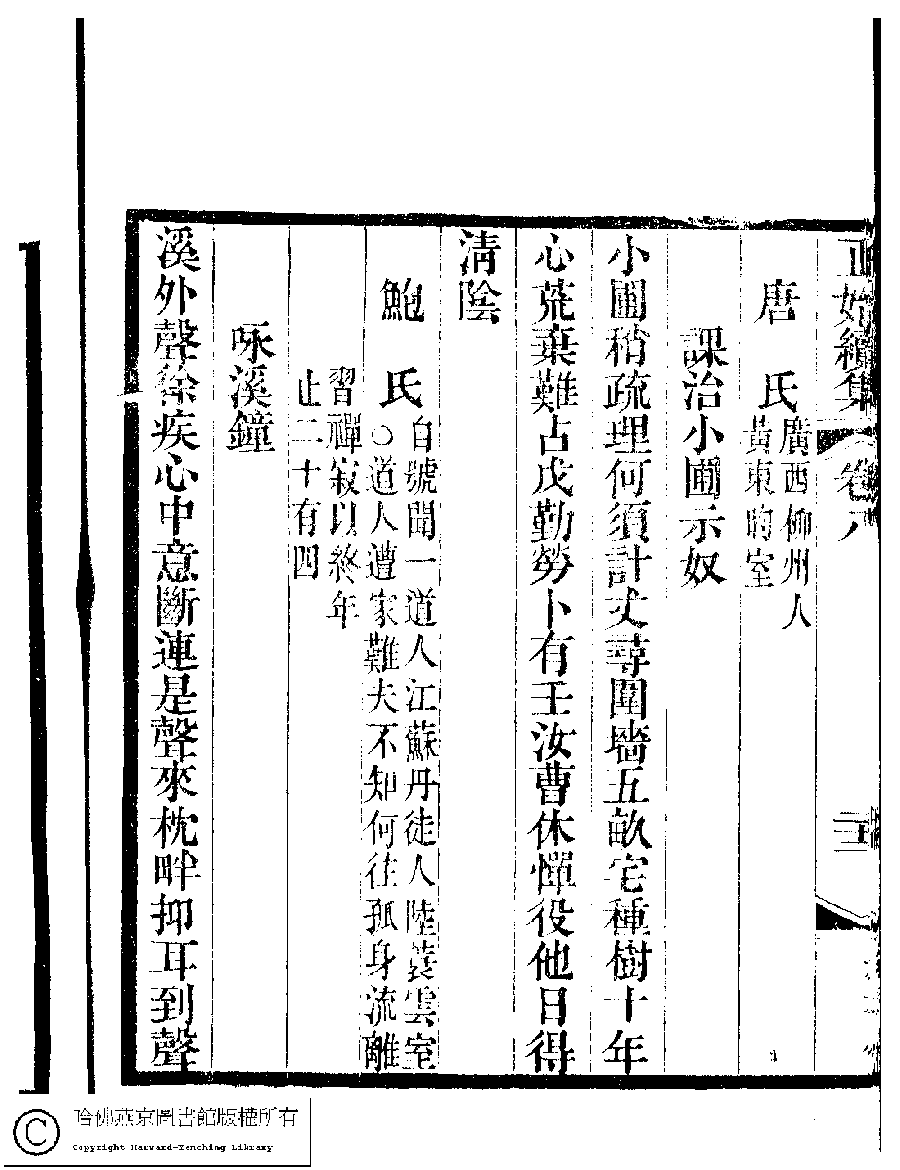 正始續集 卷八
唐 氏 廣西柳州人
黃東昀室
課治小圃示奴
小圃稍疏理何須計丈尋圍墻五畝宅種樹十年
心荒棄難占戊勤勞卜有壬汝曹休憚役他日得
清陰
鮑 氏 自號聞一道人江蘇丹徒人陸蓑雲室
○道人遭家難夫不知何往孤身流離
習禪寂以終年
止二十有四
咏溪鐘
溪外聲徐疾心中意斷連是聲來枕畔抑耳到聲
哈佛燕京圖書館版權所有
Copyright Harvard-Yenching Library